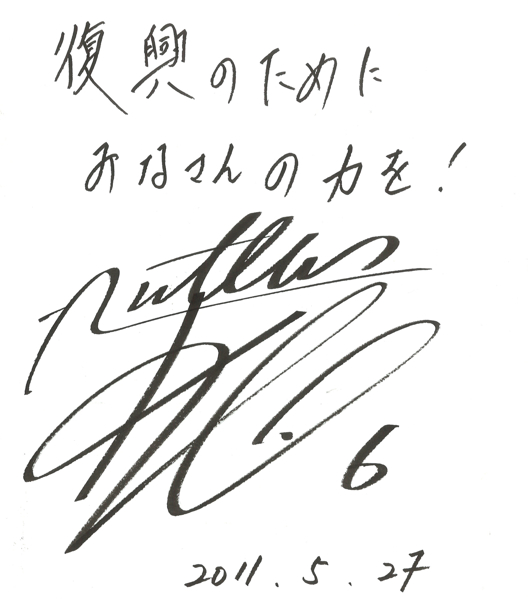 復興のために
みなさんの力を!
6
2011.5.27